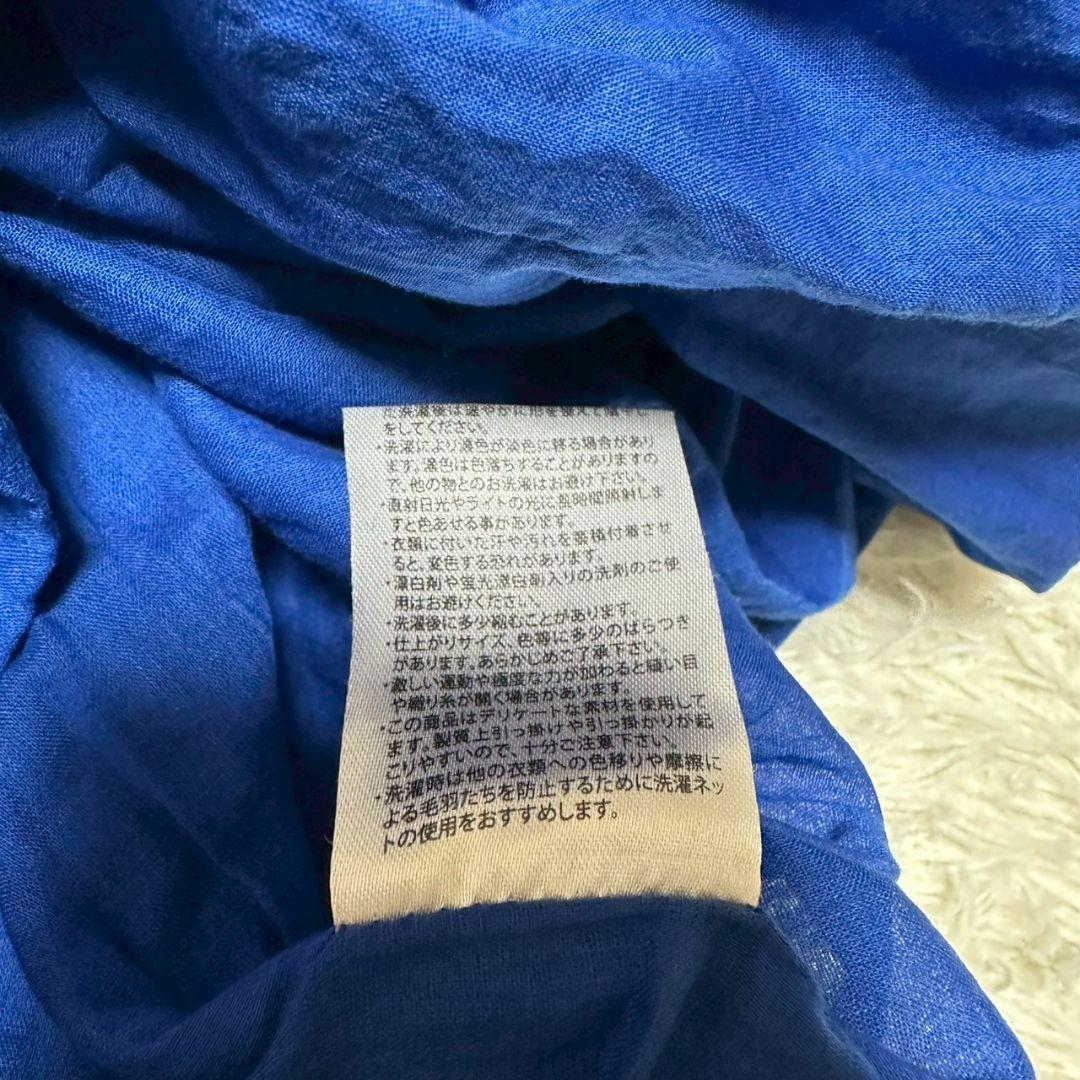 をしてください。
・洗濯により濃色が淡色に移る場合があり
ます。濃色は色落ちすることがありますの
で、他の物とのお洗濯はお避け下さい。
・直射日光やライトの光に長時間照射しま
すと色あせる事があります。
・衣類に付いた汗や汚れを蓄積付着させ
ると、変色する恐れがあります。
・漂白剤や蛍光漂白剤入りの洗剤のご使
用はお避けください。
・洗濯後に多少縮むことがあります。
・仕上がりサイズ、色等に多少のばらつき
があります。あらかじめご了承下さい。
激しい運動や極度な力が加わると縫い目
や織り糸が開く場合があります。
・この商品はデリケートな素材を使用して
ます。製質上引っ掛けや引っ掛かりが起
こりやすいので、十分ご注意下さい。
・洗濯時は他の衣類への色移りや摩擦に
よる毛羽たちを防止するために洗濯ネッ
トの使用をおすすめします。